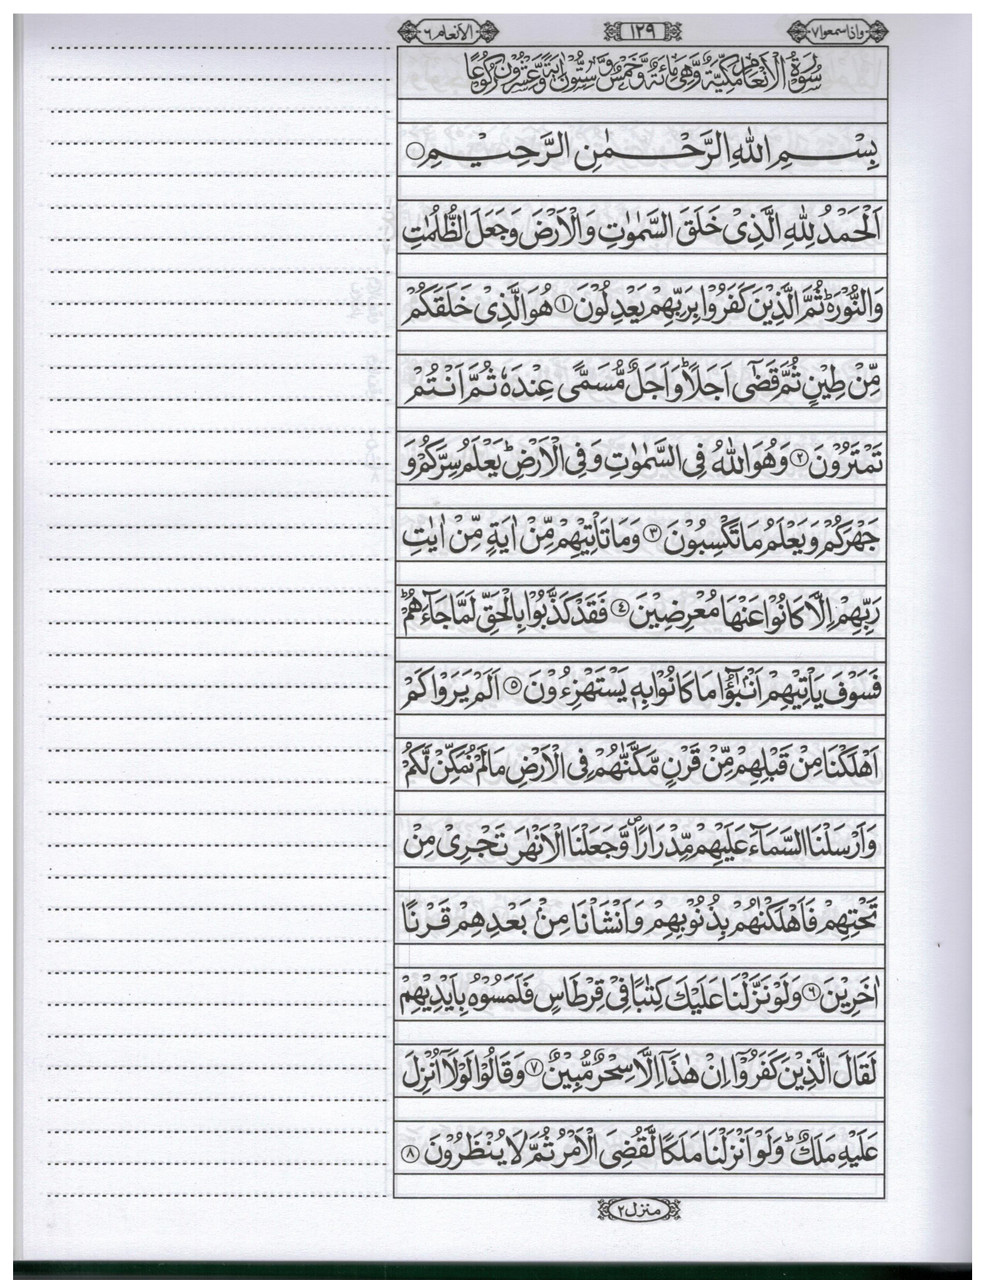 واذا سمعوا ۷ ۱۲۹ الانعام ۶
سُوْرَةُ الْاَنْعَامِ مَكِّيَّةٌ وَّهِيَ مِائَةٌ وَّخَمْسٌ وَّسِتُّوْنَ اٰيَةً وَّعِشْرُوْنَ رُكُوْعًا
بِسْمِ اللّٰهِ الرَّحْمٰنِ الرَّحِيْمِ○
اَلْحَمْدُ لِلّٰهِ الَّذِیْ خَلَقَ السَّمٰوٰتِ وَالْاَرْضَ وَجَعَلَ الظُّلُمٰتِ
وَالنُّوْرَ۬ؕ ثُمَّ الَّذِیْنَ كَفَرُوْا بِرَبِّهِمْ یَعْدِلُوْنَ ۱ هُوَ الَّذِیْ خَلَقَكُمْ
مِّنْ طِیْنٍ ثُمَّ قَضٰۤی اَجَلًاؕ وَاَجَلٌ مُّسَمًّی عِنْدَهٗ ثُمَّ اَنْتُمْ
تَمْتَرُوْنَ ۲ وَهُوَ اللّٰهُ فِی السَّمٰوٰتِ وَفِی الْاَرْضِؕ یَعْلَمُ سِرَّكُمْ وَ
جَهْرَكُمْ وَیَعْلَمُ مَا تَكْسِبُوْنَ ۳ وَمَا تَاْتِیْهِمْ مِّنْ اٰیَةٍ مِّنْ اٰیٰتِ
رَبِّهِمْ اِلَّا كَانُوْا عَنْهَا مُعْرِضِیْنَ ٤ فَقَدْ كَذَّبُوْا بِالْحَقِّ لَمَّا جَآءَهُمْؕ
فَسَوْفَ یَاْتِیْهِمْ اَنْۢبٰٓؤُا مَا كَانُوْا بِهٖ یَسْتَهْزِءُوْنَ ٥ اَلَمْ یَرَوْا كَمْ
اَهْلَكْنَا مِنْ قَبْلِهِمْ مِّنْ قَرْنٍ مَّكَّنّٰهُمْ فِی الْاَرْضِ مَا لَمْ نُمَكِّنْ لَّكُمْ
وَاَرْسَلْنَا السَّمَآءَ عَلَیْهِمْ مِّدْرَارًا۪ وَّجَعَلْنَا الْاَنْهٰرَ تَجْرِیْ مِنْ
تَحْتِهِمْ فَاَهْلَكْنٰهُمْ بِذُنُوْبِهِمْ وَاَنْشَاْنَا مِنْۢ بَعْدِهِمْ قَرْنًا
اٰخَرِیْنَ ۶ وَلَوْ نَزَّلْنَا عَلَیْكَ كِتٰبًا فِیْ قِرْطَاسٍ فَلَمَسُوْهُ بِاَیْدِیْهِمْ
لَقَالَ الَّذِیْنَ كَفَرُوْۤا اِنْ هٰذَاۤ اِلَّا سِحْرٌ مُّبِیْنٌ ۷ وَقَالُوْا لَوْلَاۤ اُنْزِلَ
عَلَیْهِ مَلَكٌؕ وَلَوْ اَنْزَلْنَا مَلَكًا لَّقُضِیَ الْاَمْرُ ثُمَّ لَا یُنْظَرُوْنَ ۸
منزل ۲